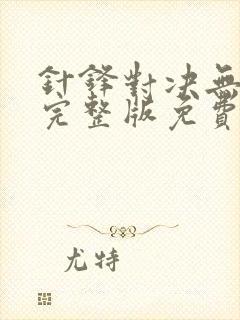 針鋒對決無
完整版免費
尤特